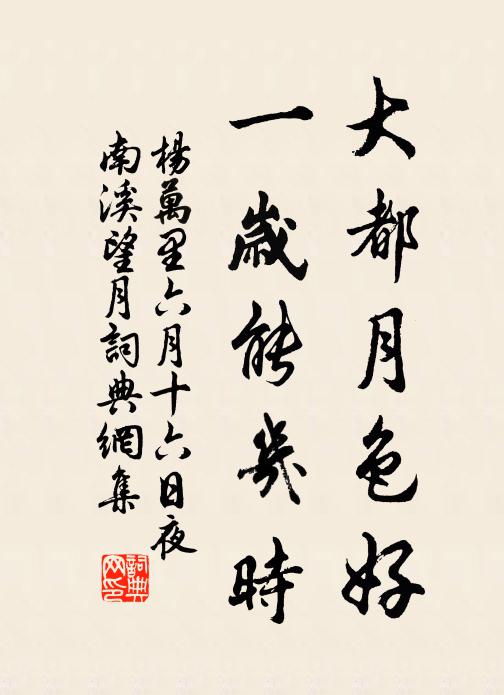 大都月色好
一歲能幾時
楊萬里六月十六日夜
南溪望月詞典網集
詞典
网印